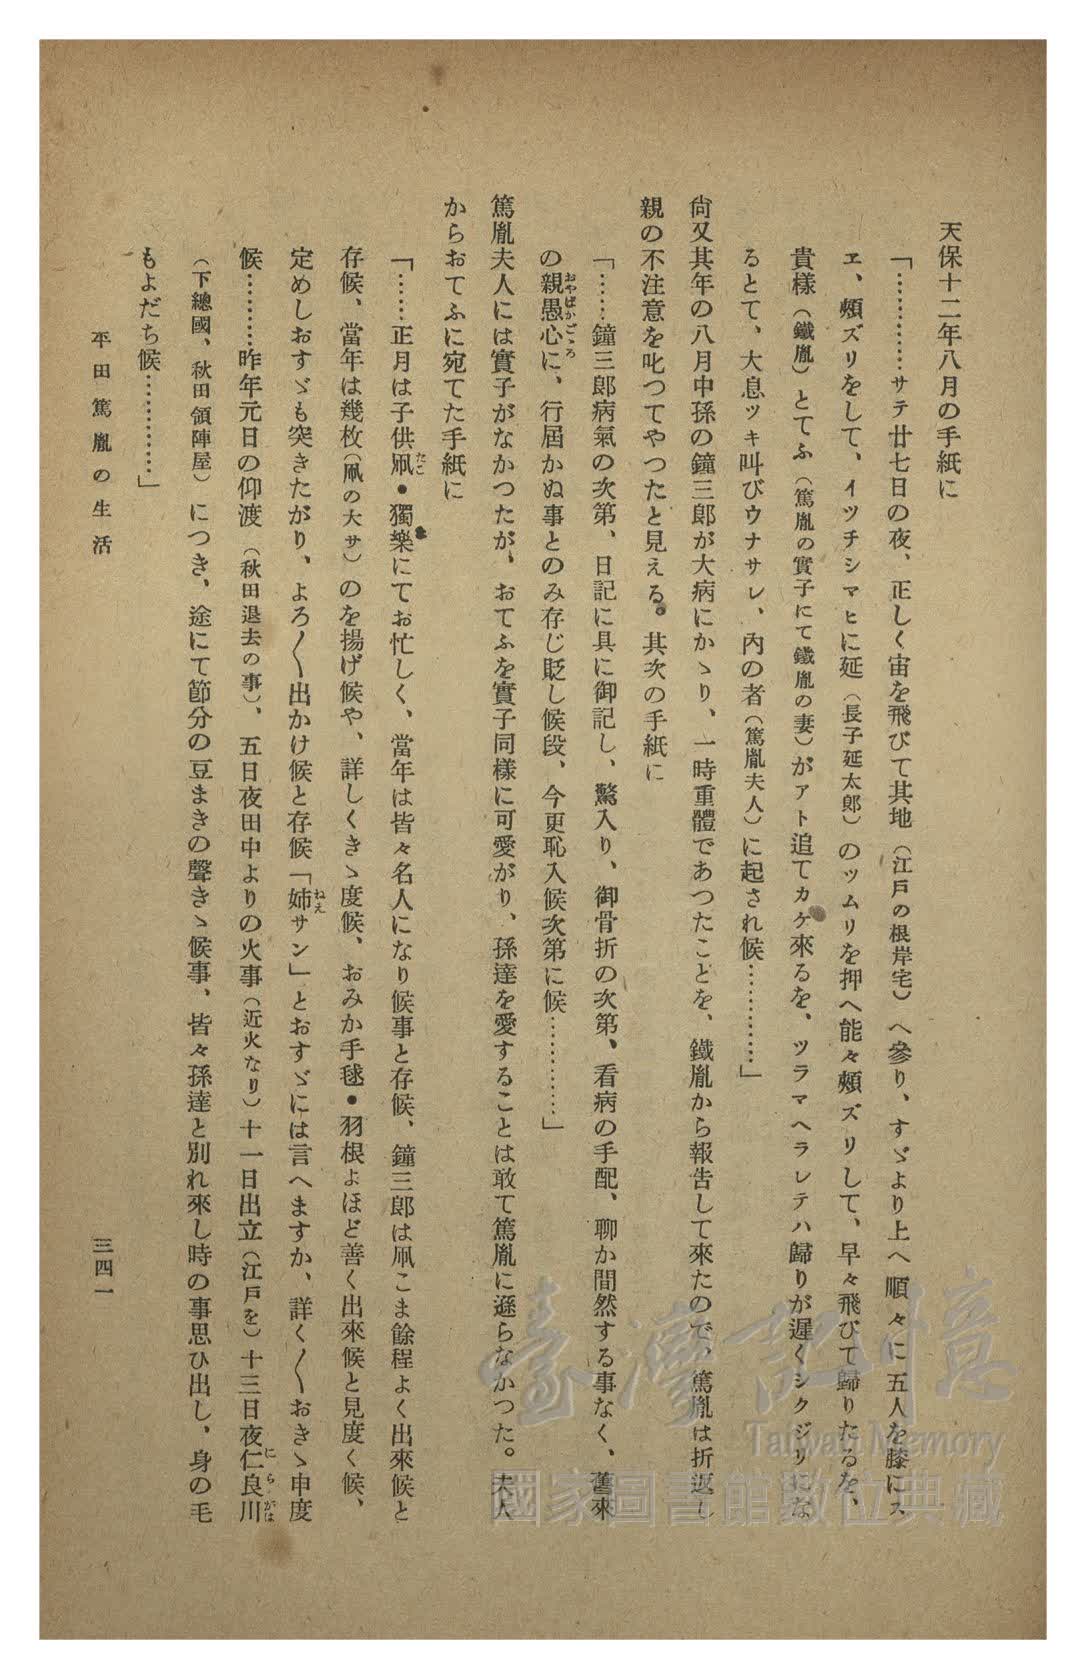 天保十二年八月の手紙に
「…………サテ廿七日の夜、正しく宙を飛びて其地（江戸の根岸宅）へ參り、すゞより上へ順々に五人を膝にス
ヱ、頰ズリをして、イツチシマヒに延（長子延太郎）のツムリを押へ能々頰ズリして、早々飛びて歸りたるを、
貴樣（鐵胤）とてふ（篤胤の實子にて鐵胤の妻）がアト追てカケ來るを、ツラマヘラレテハ歸りが遲くシクジリにな
るとて、大息ツキ叫びウナサレ、内の者（篤胤夫人）に起され候…………」
尙又其年の八月中孫の鐘三郎が大病にかゝり、一時重體であつたことを、鐵胤から報告して來たので、篤胤は折返し
親の不注意を叱つてやつたと見える。其次の手紙に
「……鐘三郎病氣の次第、日記に具に御記し、驚入り、御骨折の次第、看病の手配、聊か間然する事なく、舊來
の親愚心に、行屆かぬ事とのみ存じ貶し候段、今更恥入候次第に候…………」
おやばかごころ
篤胤夫人には實子がなかつたが、おてふを實子同樣に可愛がり、孫達を愛することは敢て篤胤に遜らなかつた。夫人
からおてふに宛てた手紙に
「……正月は子供凧・獨樂にてお忙しく、當年は皆々名人になり候事と存候、鐘三郎は凧こま餘程よく出來候と
たこ
存候、當年は幾枚（凧の大サ）のを揚げ候や、詳しくきゝ度候、おみか手毬・羽根よほど善く出來候と見度く候、
定めしおすゞも突きたがり、よろ〱出かけ候と存候「姉サン」とおすゞには言へますか、詳く〱おきゝ申度
ねえ
候…………昨年元日の仰渡（秋田退去の事）、五日夜田中よりの火事（近火なり）十一日出立（江戸を）十三日夜仁良川
にらがは
（下總國、秋田領陣屋）につき、途にて節分の豆まきの聲きゝ候事、皆々孫達と別れ來し時の事思ひ出し、身の毛
もよだち候…………」
平田篤胤の生活
三四一
臺灣記憶
Taiwan Memory
國家圖書館數位典藏